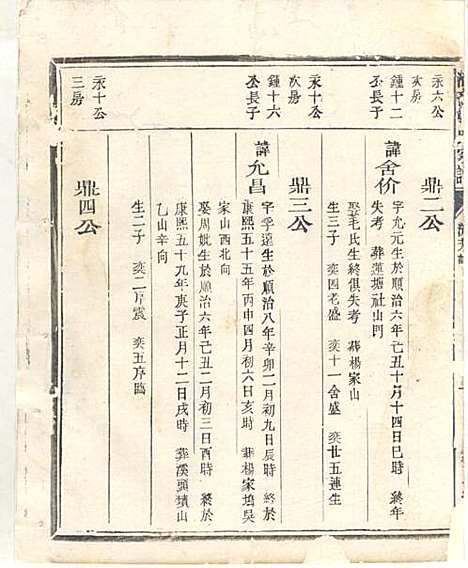 汞六公
次房
鍾十二
公長子
鼎二公
諱舍价
字允元生於順治六年己丑十月十四日巳時 終年
失考 葬蓮塘社山門
娶毛氏生終俱失考 葬楊家山
生三子 奕四老盛 奕十一舍盛 奕廿五連生
汞十公
次房
鍾十六
公長子
鼎三公
諱允昌
字孚遠生於順治八年辛卯二月初九日辰時 終於
康熙五十五年丙申四月初六日亥時 葬楊家塢吳
家山西北向
娶周妣生於順治六年己丑二月初三日酉時 終於
康熙五十九年庚子正月十二日戌時 葬溪頭墳山
乙山辛向
生二子 奕二序震 奕五序臨
汞十公
三房
鼎四公